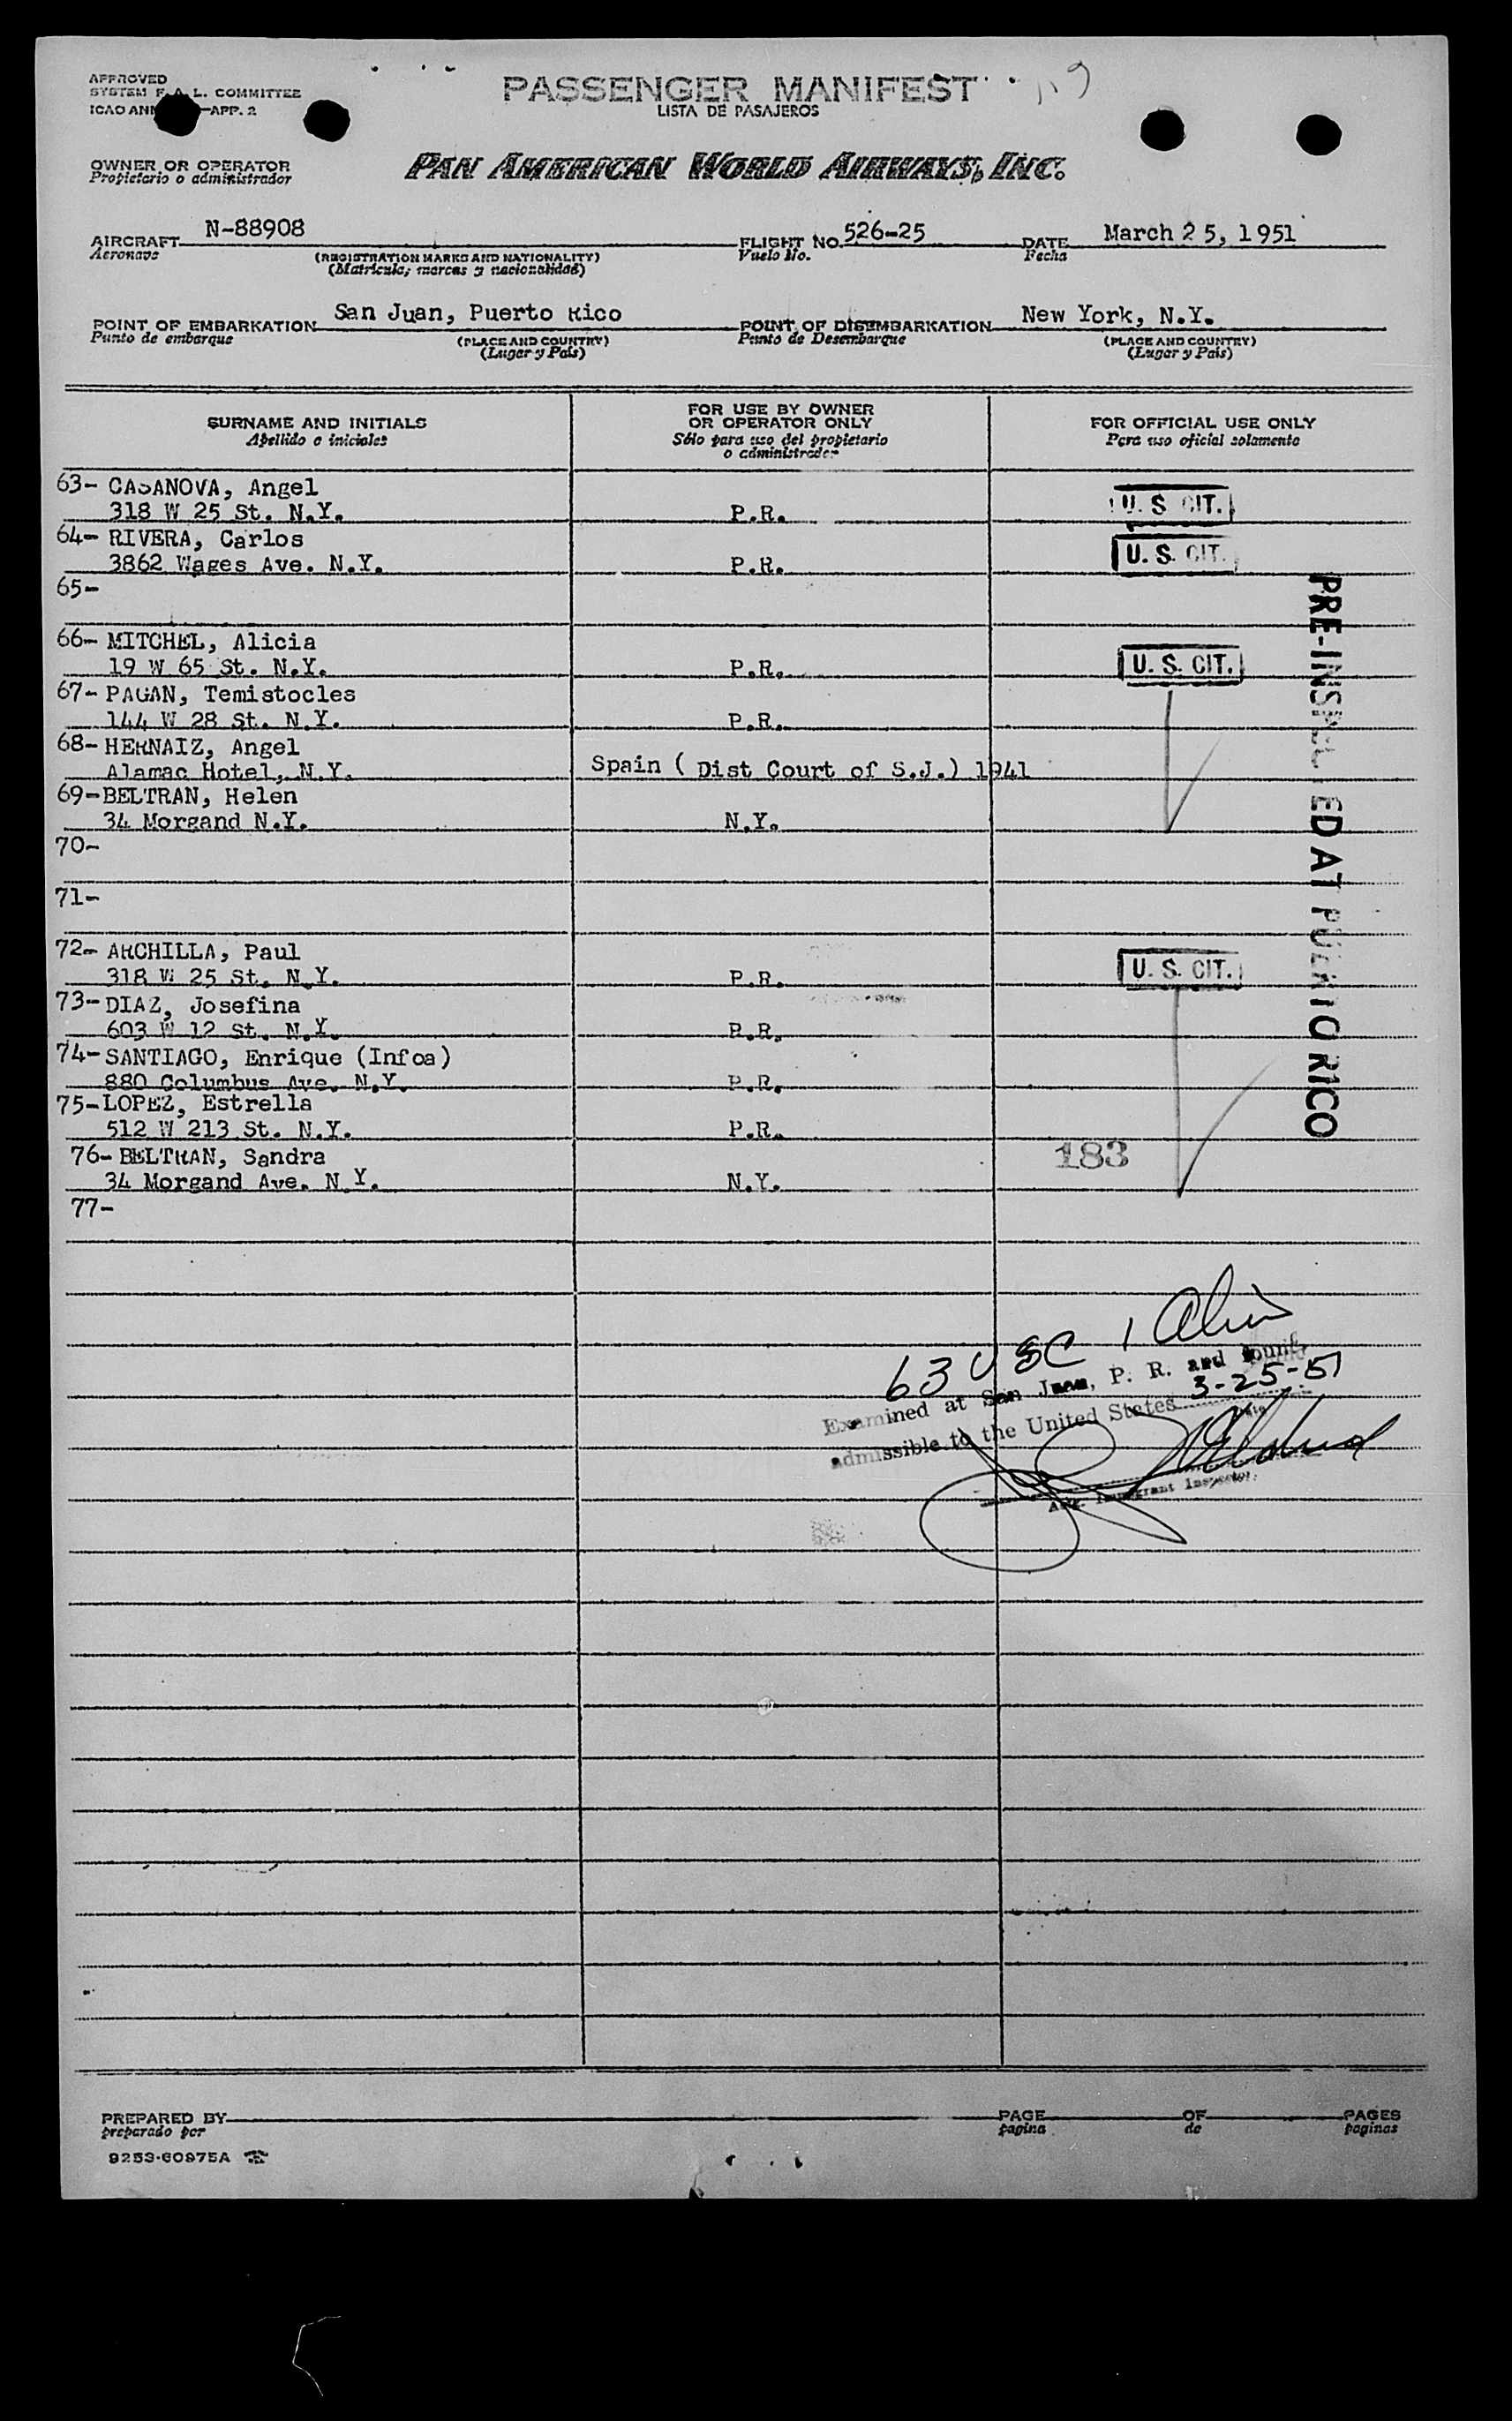 APPROVED
SYSTEM F.A.L. COMMITTEE
ICAO APP. 2
PASSENGER MANIFEST
LISTA DE PASAJEROS
OWNER OR OPERATOR
Propietario o administrador
PAN AMERICAN WORLD AIRWAYS, INC.
AIRCRAFT N-88908 FLIGHT NO. 526-25 DATE March 25, 1951
Aeronave (REGISTRATION MARKS AND NATIONALITY) Vuelo No. Fecha
(Matricula; marcas y nacionalidad)
POINT OF EMBARKATION San Juan, Puerto Rico POINT OF DISEMBARKATION New York, N.Y.
Punto de embarque (PLACE AND COUNTRY) Punto de Desembarque (PLACE AND COUNTRY)
(Lugar y País) (Lugar y País)
SURNAME AND INITIALS FOR USE BY OWNER OR OPERATOR ONLY FOR OFFICIAL USE ONLY
Apellido e iniciales Sólo para uso del propietario o administrador Para uso oficial solamente
63- CASANOVA, Angel
318 W 25 St. N.Y. P.R. U.S. CIT.
64- RIVERA, Carlos
3862 Wages Ave. N.Y. P.R. U.S. CIT.
65-
66- MITCHEL, Alicia
19 W 65 St. N.Y. P.R. U.S. CIT.
67- PAGAN, Temistocles
144 W 28 St. N.Y. P.R.
68- HERNAIZ, Angel
Alamac Hotel, N.Y. Spain ( Dist Court of S.J.) 1941
69- BELTRAN, Helen
34 Morgand N.Y. N.Y.
70-
71-
72- ARCHILLA, Paul
318 W 25 St. N.Y. P.R. U.S. CIT.
73- DIAZ, Josefina
603 W 12 St. N.Y. P.R.
74- SANTIAGO, Enrique (Infoa)
880 Columbus Ave. N.Y. P.R.
75- LOPEZ, Estrella
512 W 213 St. N.Y. P.R.
76- BELTRAN, Sandra 183
34 Morgand Ave. N.Y. N.Y.
77-
PRE-INSPECTED AT PUERTO RICO
63 USC 1
Examined at San Juan, P. R. and found
admissible to the United States 3-25-51
Immigrant Inspector.
PREPARED BY PAGE OF PAGES
preparado por pagina de paginas
9253-60975A